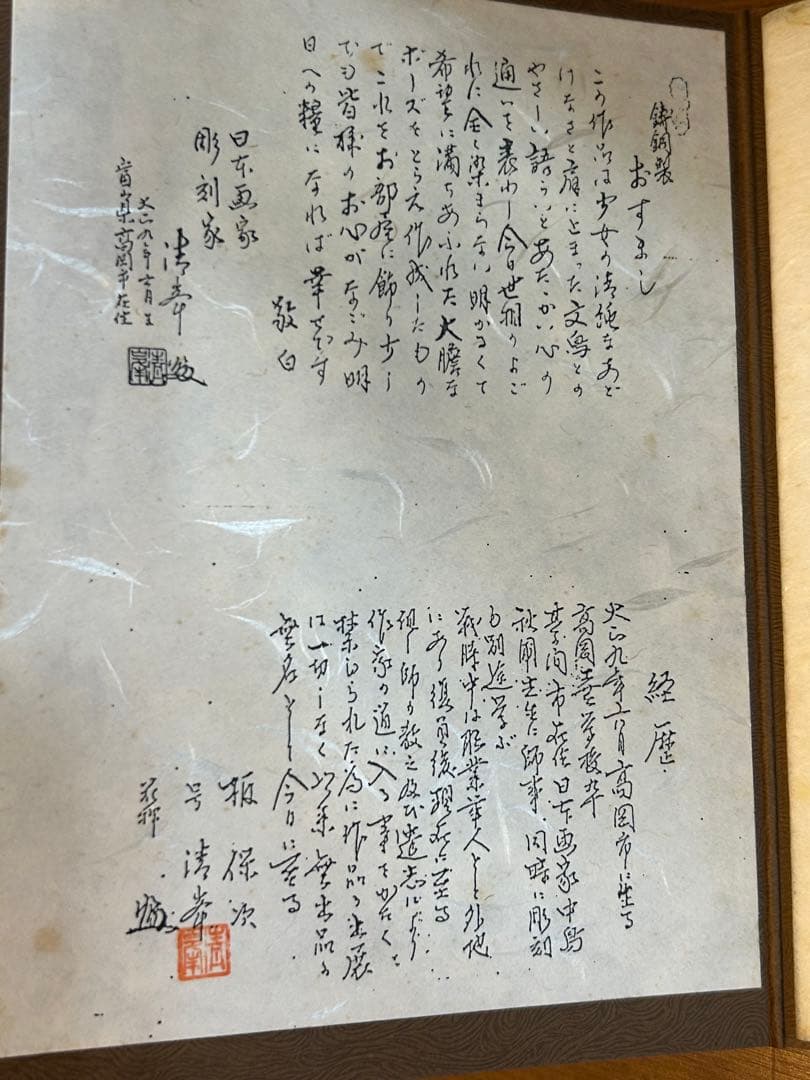 鋳銅製
おすまし
この作品は少女の清純なあど
けなさと肩に止まった文鳥との
やさしい語らいとあたゝかい心の
通いを表わし今日世相のよご
れに全く染まらない明かるくて
希望に満ちあふれた大膽な
ポーズをとらえ作成したもの
でこれをお部屋に飾り少し
でも皆様のお心がなごみ明
日への糧になれば幸せです
敬白
日本画家
彫刻家
清峯
大正九年六月生
富山県高岡市在住
経歴
大正九年六月高岡市に生る
高岡工芸学校卒
高岡市在住日本画家中島
秋圃先生に師事 同時に彫刻
も別途学ぶ
戦時中は職業軍人として外地
にあり復員後現在に至る
祖師の教え及び遺志により
作家の道に入る事をかたくと
禁じられた為に作品の出展
は一切しなく以来無出品の
無名として今日に至る
板 保次
号 清峯